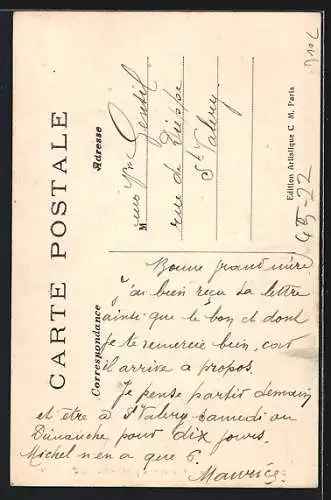 CARTE POSTALE
Correspondance
Adresse
M
Gentil
rue de Dieppe
St Valery
Edition Artistique C. M. Paris
Bonne grand mère
j'ai bien reçu ta lettre
ainsi que le bon et dont
je te remercie bien, car
il arrive à propos.
Je pense partir demain
et être à St Valery samedi ou
Dimanche pour dix jours.
Michel n'en a que 6.
Maurice